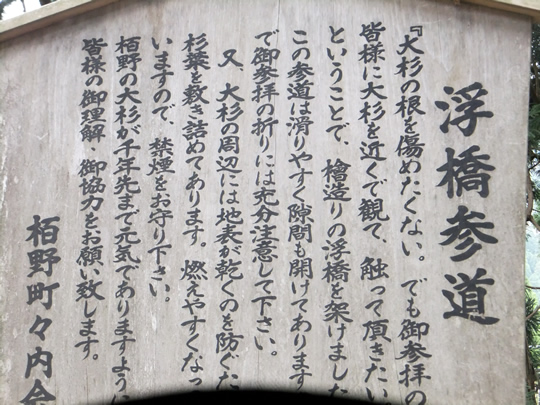 浮橋参道
『大杉の根を傷めたくない。でも御参拝の
皆様に大杉を近くで観て、触って頂きたい
ということで、檜造りの浮橋を架けました
この参道は滑りやすく隙間も開けてあります
で御参拝の折りには充分注意して下さい。
又、大杉の周辺には地表が乾くのを防ぐた
杉葉を敷き詰めてあります。燃えやすくなっ
いますので、禁煙をお守り下さい。
栢野の大杉が千年先まで元気でありますように
皆様の御理解・御協力をお願い致します。
栢野町々内会